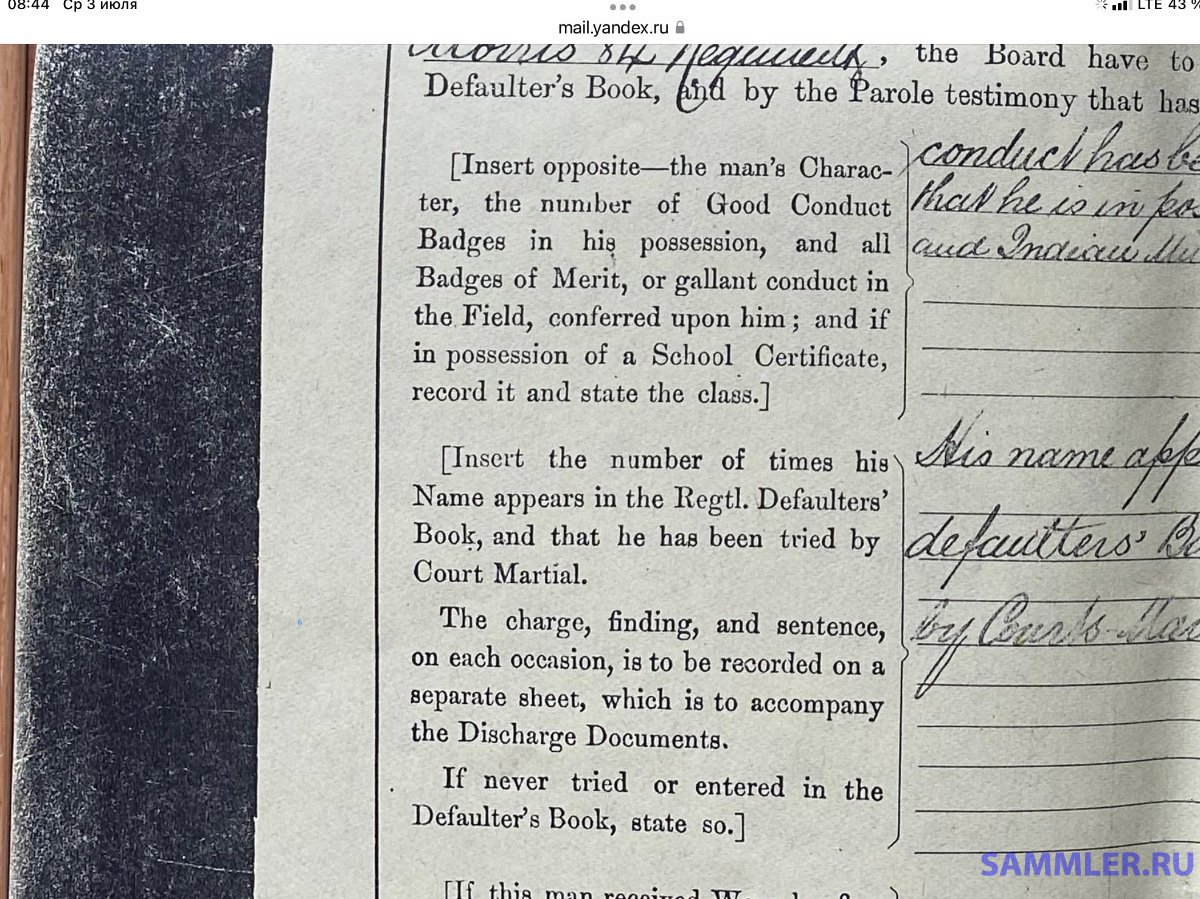 08:44 Ср 3 июля
LTE 43 %
mail.yandex.ru
Morris 84 Regiment, the Board have to
Defaulter's Book, and by the Parole testimony that has
[Insert opposite—the man's Charac-
ter, the number of Good Conduct
Badges in his possession, and all
Badges of Merit, or gallant conduct in
the Field, conferred upon him; and if
in possession of a School Certificate,
record it and state the class.]
conduct has be
that he is in pos
and Indian Mu
[Insert the number of times his
Name appears in the Regtl. Defaulters'
Book, and that he has been tried by
Court Martial.
The charge, finding, and sentence,
on each occasion, is to be recorded on a
separate sheet, which is to accompany
the Discharge Documents.
If never tried or entered in the
Defaulter's Book, state so.]
His name app
defaulters' B
by Courts-Mar
[If this man received
SAMMLER.RU